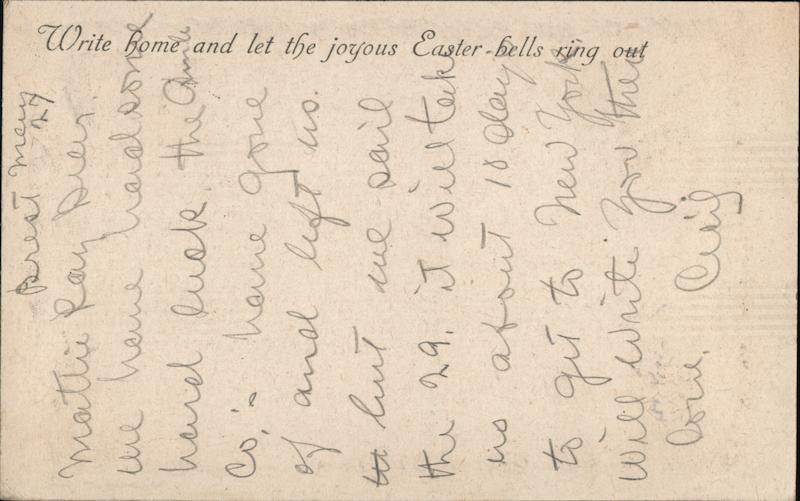 Write home and let the joyous Easter bells ring out
Brest May
27
Mattie Ray Dear.
we have had some
hard luck. the
Co.'s have gone
of and left us.
but we sail
the 29. it will take
us about 10 day
to git to New York
will write you then
love. Craig